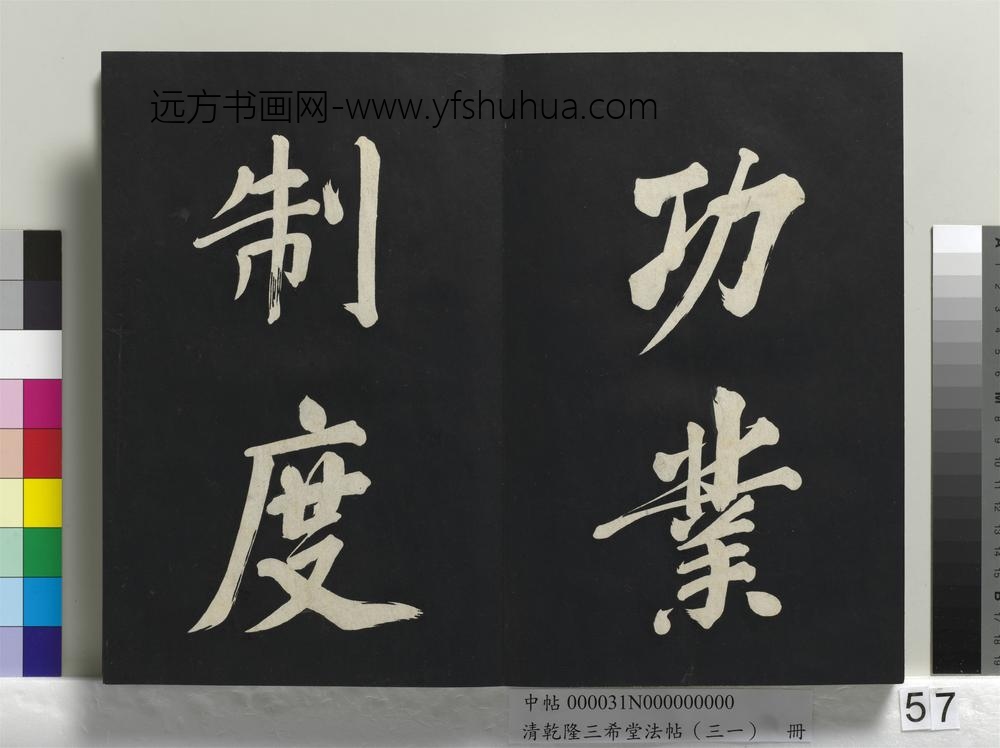 远方书画网-www.yfshuhua.com
功業
制度
中帖 000031N000000000
清乾隆三希堂法帖（三一） 冊
57